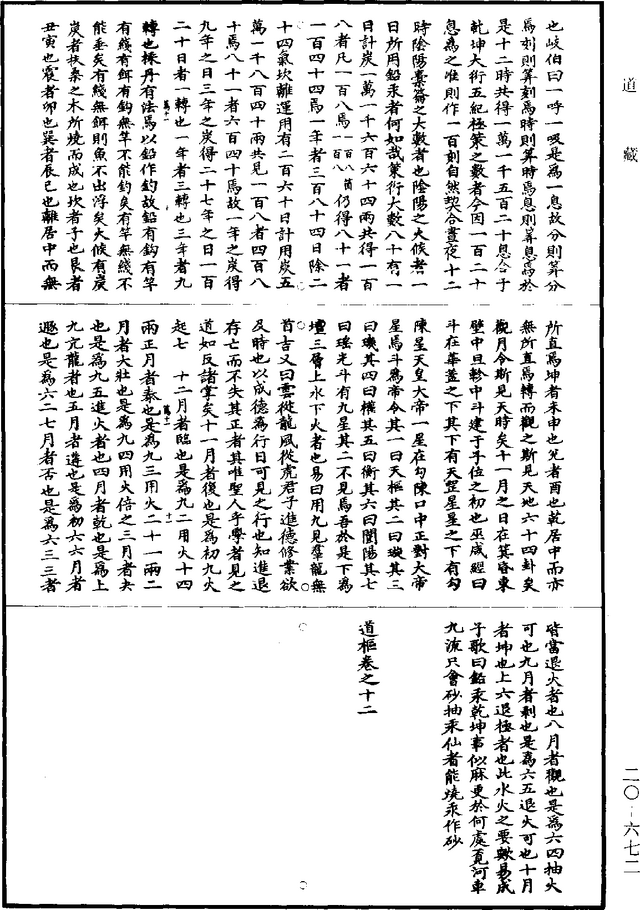 道藏
也岐伯曰一呼一吸是為一息故分則筭分
為刻則筭刻為時則筭時為息則筭息焉於
是十二時共得一萬一千五百二十息合于
乾坤大衍五紀極策之數者今因一百二十
息為之准則作一百刻自然契合晝夜十二
時陰陽橐籥之大數者也陰陽之火候者一
日所用鉛汞者何如哉策衍大數八十有一
日計炭一萬一千六百六十四兩共得一百
八者凡一百八焉一百八箇一百八仍得八十一者
一百四十四焉一年者三百八十四日除二
十四氣坎離運用有二百六十日計用炭五
萬一千八百四十兩共見一百八者四百八
十焉八十一者六百四十焉故一年之炭得
九年之日三年之炭得二十七年之日一百
二十日者一轉也一年者三轉也三年者九
轉也採丹有法焉以鉛作釣故鉛有鈎有竿
有綫有餌有鈎無竿不能釣矣有竿無綫不
能垂矣有綫無餌則魚不出浮矣火候有炭
炭者扶桑之木所燒而成也坎者子也艮者
丑寅也震者卯也巽者辰巳也離居中而無
所直焉坤者未申也兌者酉也乾居中而亦
無所直焉轉而觀之斯見天地六十四卦矣
觀月令斯見天時矣十一月之日在箕昏東
壁中旦軫中斗建于子位之初也巫咸經曰
斗在華蓋之下其下有天罡星星之下有勾
陳星天皇大帝一星在勾陳口中正對大帝
星焉斗為帝令其一曰天樞其二曰璇其三
曰璣其四曰權其五曰衡其六曰闓陽其七
曰瑤光斗有九星其二不見焉吾於是下為
壇三層上水下火者也易曰用九見羣龍無
首吉又曰雲從龍風從虎君子進德修業欲
及時也以成德為行日可見之行也知進退
存亡而不失其正者其唯聖人乎學者見之
道如反諸掌矣十一月者復也是為初九火
起七　十二月者臨也是為九二用火十四
兩正月者泰也是為九三用火二十一兩二
月者大壯也是為九四用火倍之三月者夬
也是為九五進火者也四月者乾也是為上
九亢龍者也五月者遘也是為初六六月者
遯也是為六二七月者否也是為六三三者
皆當退火者也八月者觀也是為六四抽火
可也九月者剝也是為六五退火可也十月
者坤也上六退極者也此水火之要歟易成
子歌曰鉛汞乾坤事似麻更於何處覓河車
九流只會砂抽汞仙者能燒汞作砂
道樞卷之十二
二〇-六七二